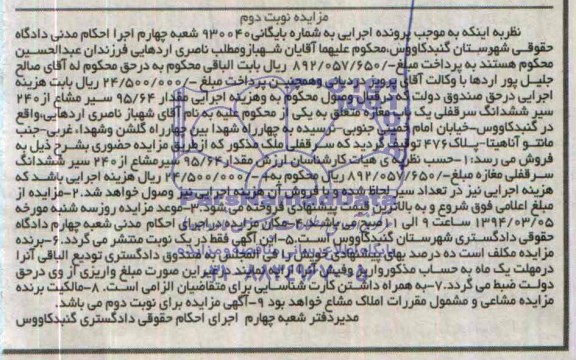 مزایده نوبت دوم
نظر به اینکه به موجب پرونده اجرایی به شماره بایگانی ۹۳۰۰۴۰ شعبه چهارم اجرا احکام مدنی دادگاه
حقوقی شهرستان گنبدکاووس،محکوم علیهما آقایان شهباز ومطلب ناصری اردهایی فرزندان عبدالحسین
محکوم هستند به پرداخت مبلغ-/۸۹۲/۰۵۷/۶۵۰ ریال بابت الباقی محکوم به درحق محکوم له آقای صالح
جلیل پور اردها با وکالت آقای پرویز دردیانی وهمچنین پرداخت مبلغ -/۲۴/۵۰۰/۰۰۰ ریال بابت هزینه
اجرایی درحق صندوق دولت که درقبال وصول محکوم به وهزینه اجرایی مقدار ۹۵/۶۴ سیر مشاع از ۲۴۰
سیر ششدانگ سرقفلی یک باب مغازه متعلق به یکی از محکوم علیه به نام آقای شهباز ناصری اردهایی،واقع
در گنبدکاووس-خیابان امام خمینی جنوبی-نرسیده به چهارراه شهدا بین چهارراه گلشن وشهداء، غربی-جنب
مانتو آناهیتا-پلاک۴۷۶ توقیف گردید که سرقفلی ملک مذکور که ازطریق مزایده حضوری بشرح ذیل به
فروش می رسد:۱-حسب نظریه ی هیات کارشناسان ارزش مقدار ۹۵/۶۴ سیرمشاع از ۲۴۰ سیر ششدانگ
سرقفلی مغازه مبلغ-/۸۹۲/۰۵۷/۶۵۰ ریال محکوم به+-/۲۴/۵۰۰/۰۰۰ ریال هزینه اجرایی باشد که
هزینه اجرایی نیز در تعداد سیر لحاظ شده و با فروش آن هزینه اجرایی نیز وصول خواهد شد.۲-مزایده از
مبلغ اعلامی فوق شروع و به بالاترین قیمت پیشنهادی فروخته می شود.۳-موعد مزایده روزسه شنبه مورخه
۱۳۹۴/۰۳/۰۵ ساعت ۹ الی ۱۰صبح می باشد.۴-مکان مزایده دراجرای احکام مدنی شعبه چهارم دادگاه
حقوقی دادگستری شهرستان گنبدکاووس است.۵-این آگهی فقط در یک نوبت منتشر می گردد.۶-برنده
مزایده مکلف است ده درصد بهای پیشنهادی خویش را فی المجلس به صندوق دادگستری تودیع الباقی آنرا
درمهلت یک ماه به حساب مذکور واریز وفیش آنرا ارائه نماید. درغیر این صورت مبلغ واریزی از وی درحق
دولت ضبط می گردد.۷-به همراه داشتن کارت شناسایی برای متقاضیان الزامی است. ۸-مالکیت برنده
مزایده مشاعی و مشمول مقررات املاک مشاع خواهد بود ۹-آگهی مزایده برای نوبت دوم می باشد.
مدیردفتر شعبه چهارم اجرای احکام حقوقی دادگستری گنبدکاووس